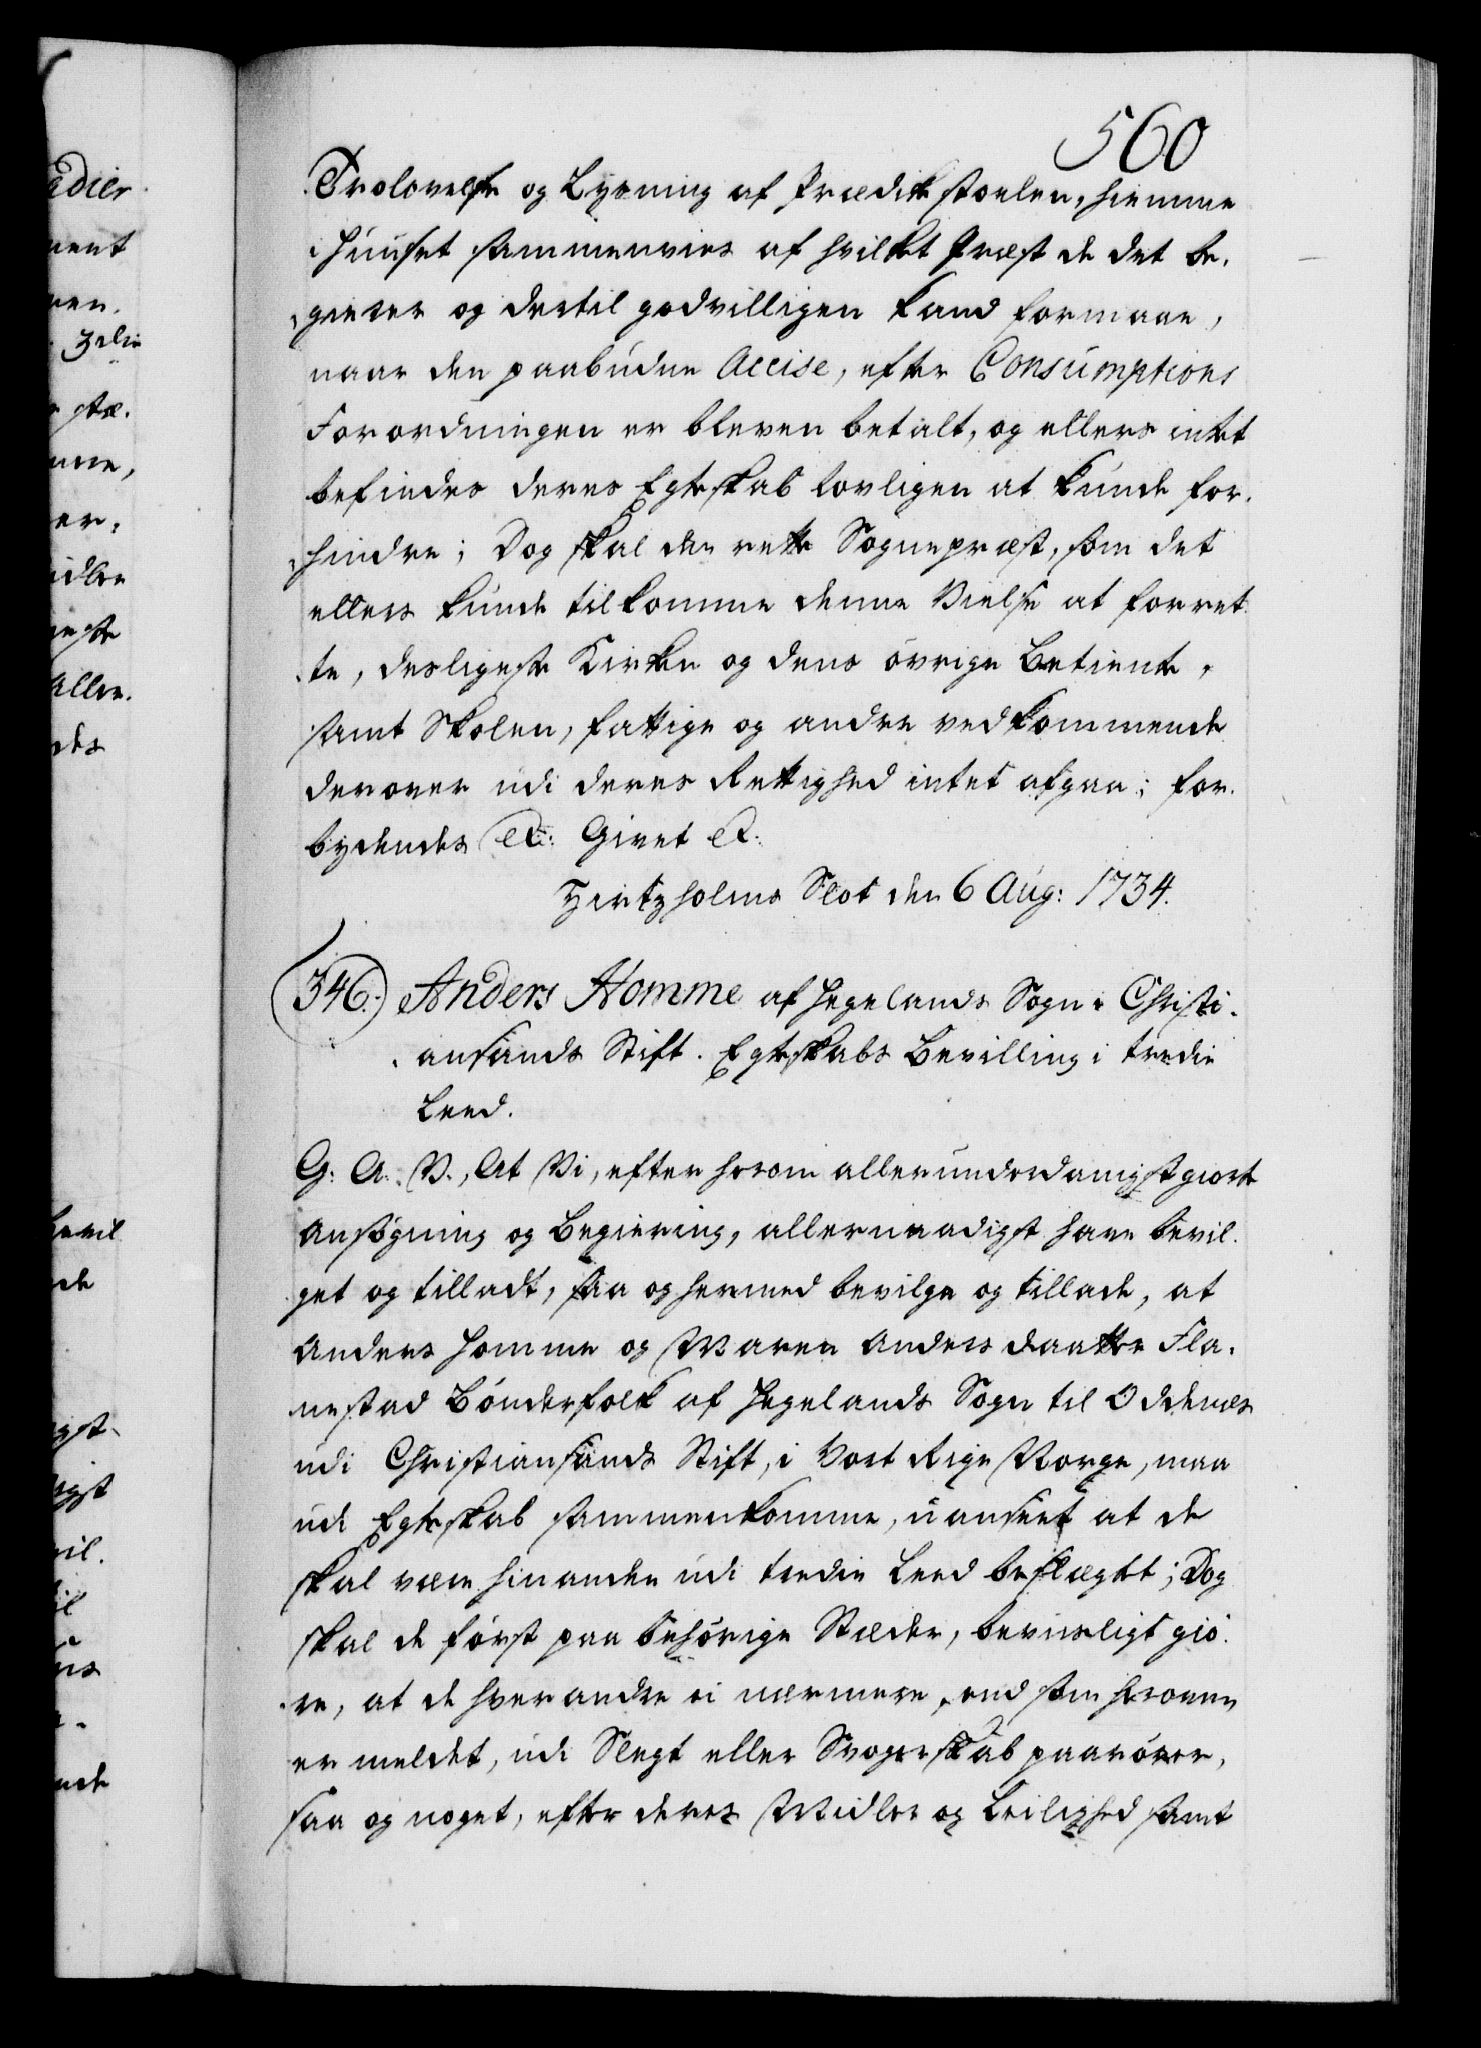 560
Trolovelse og Lysning af Prædikestoelen, hiemme
i Huuset sammenvies af hvilket Præst de det be-
gierer og dertil godvilligen kand formaae,
naar den paabudne Accise, efter Consumptions
Forordningen er bleven betalt, og ellers intet
befindes deres Egteskab lovligen at kunde for-
hindre; Dog skal den rette Sognepræst, som det
ellers kunde tilkomme denne Vielse at forret-
te, desligeste Kirken og dens øvrige Betiente,
samt Skolen, fattige og andre vedkommende
derover udi deres Rettighed intet afgaa; for-
bydendes etc: Givet etc:
Hirtzholms Slot den 6 Aug: 1734.
346. Anders Homme af Hegelands Sogn i Christi-
ansands Stift. Egteskabs Bevilling i tredie
Leed.
G: A: V., At Vi, efter herom allerunderdanigst giorte
Ansøgning og Begiering, allernaadigst have bevil-
get og tilladt, saa og hermed bevilge og tillade, at
Anders Homme og Maren Anders daatter Fla-
nestad Bønderfolk af Hegelands Sogn til Oddernes
udi Christiansands Stift, i Vort Rige Norge, maa
udi Egteskab sammenkomme, uanseet at de
skal være hinanden udi tredie Leed beslægtet; Dog
skal de først paa behørige Stæder, beviisligt giø-
re, at de hverandre ei nærmere, end som heroven
er meldet, udi Slegt eller Svogerskab paarører,
saa og noget, efter deres Midler og Leilighed samt